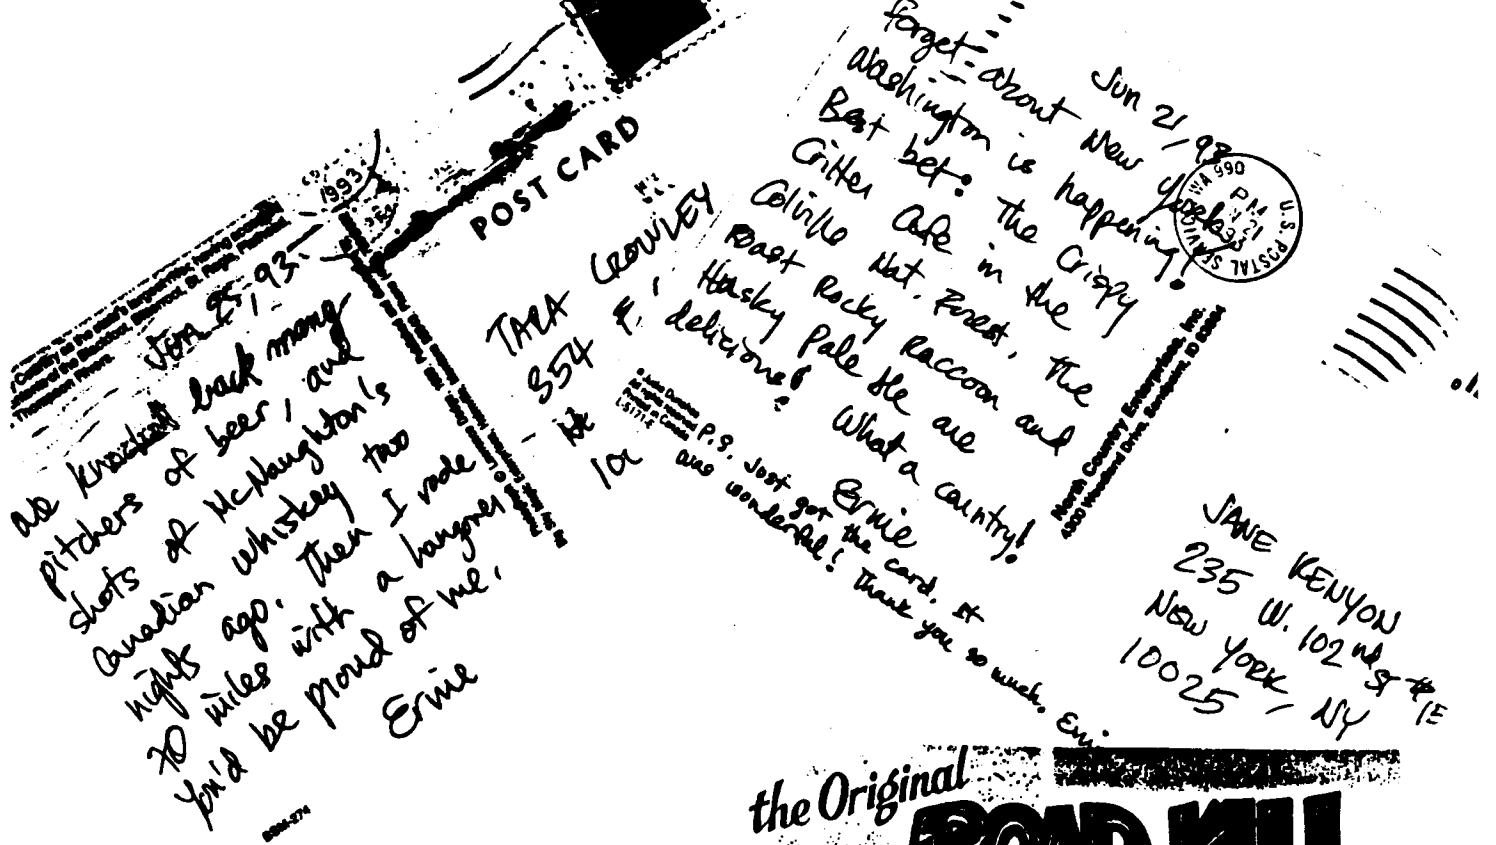 POST CARD
1993
Jun 25, 93.
We knocked back many
pitchers of beer, and
shots of McNaughton's
Canadian whiskey two
nights ago. Then I rode
70 miles with a hangover
You'd be proud of me.
Ernie
TARA CROWLEY
354 E.
10
Thompson Rivers.
Jun 21, 93
Forget about New York,
Washington is happening!
Best bet: The Crispy
Critter Cafe in the
Colville Nat. Forest, the
Roast Rocky Raccoon and
Husky Pale Ale are
delicious! What a country!
Ernie
P.S. Just got the card. It
was wonderful! Thank you so much.
All rights reserved
North Country Enterprises, Inc.
WA 990
PM
21
U.S. POSTAL SERVICE
JANE KENYON
235 W. 102nd St #1E
New York, NY
10025
the Original
ROAD KILL